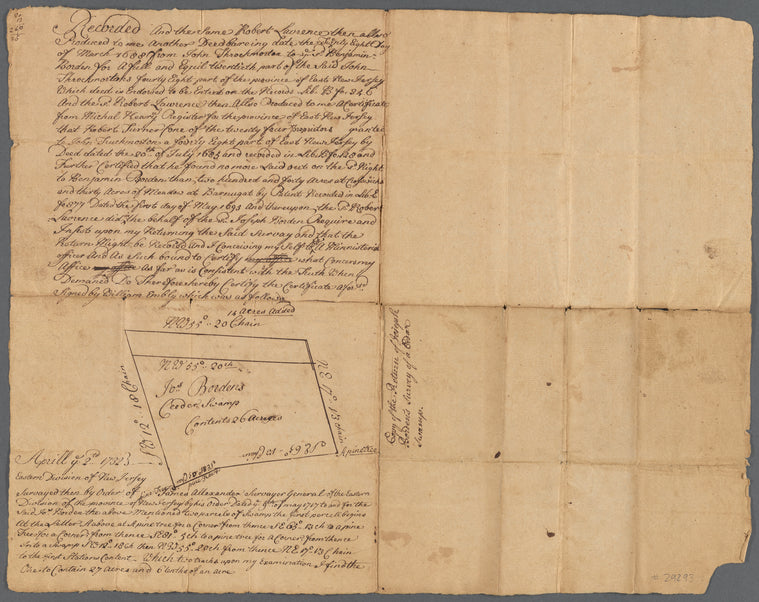 Recorded And the same Robert Laurence then allso
Produced to me Another Deed bareing date the Eight Day
of March 1688 from John Throckmorton to Benjamin
Borden for A full and Equil twentieth part of the Said John
Throckmortons fourty Eight part of the province of East New Jersey
Which deed is Endorsed to be Enterd on the Records Lib. B fo: 246
And the sd. Robert Lawrence then Allso Produced to me A Certificate
from Michal Kearny Register for the province of East New Jersey
that Robert Turner one of the twenty four propriters granted
to John Truckmorton a fourty Eight part of East New Jersey by
Deed dated the 20th of July 1685 and recorded in Lib. fo: 120 and
Further Certified that he found no more Laid out on the sd. Right
to Benjamin Borden than two hundred and forty Acres at
and thirty Acres of Meadow at Barnugat by Patent Recorded in Lib. E
fo: 877 Dated the first day of May 1693 And thereupon the sd. Robert
Laurence did in the behalf of the sd. Joseph Borden Require and
Insist upon my Returning the Said Survay and that the
Return Might be Recorded and I Conceiving my Self A Ministerial
officer And As Such bound to Certify what Concerns my
Office As far as is Consistent with the Truth When
Demanded Do Therefore hereby Certify the Certificate aforsd.
Signed by William Embly which was as follows
14 Acres Added
NW 55°.. 20 Chain
NW 55°.. 20 ch
Jos. Bordens
Ceeder Swamp
Contents 26 Acres
SW 12°.. 18 Chain
NE 17°.. 13 Chain
SE 63°.. 12 Chain
A pine tree
Aprill ye. 2nd. 1723
Eastern Division of New Jersey
Survayed then by Order of James Allexander Survayer General of the Eastern
Division of the province of New Jersey by his Order Dated ye. 9th of may 1717 to and for the
Said Jos. Borden the above Mentioned two parcels of Swamp the first percele begins
At the Letter A above at A pine tree for a Corner from thence SE 63°.. 12 ch to a pine
Tree for a Corner from thence SE 81°.. 5 ch to a pine tree for A Corner from thence
into a Swamp SW 12°.. 18 ch then NW 55°.. 20 ch from thence NE 17°.. 13 Chain
to the first Station Content which two tracts upon my Examination I find the
One to Contain 27 Acres and 6 tenths of an acre
Copy of the Return of Joseph
Borden's Survey of a Cedar
Swamp.
# 29293